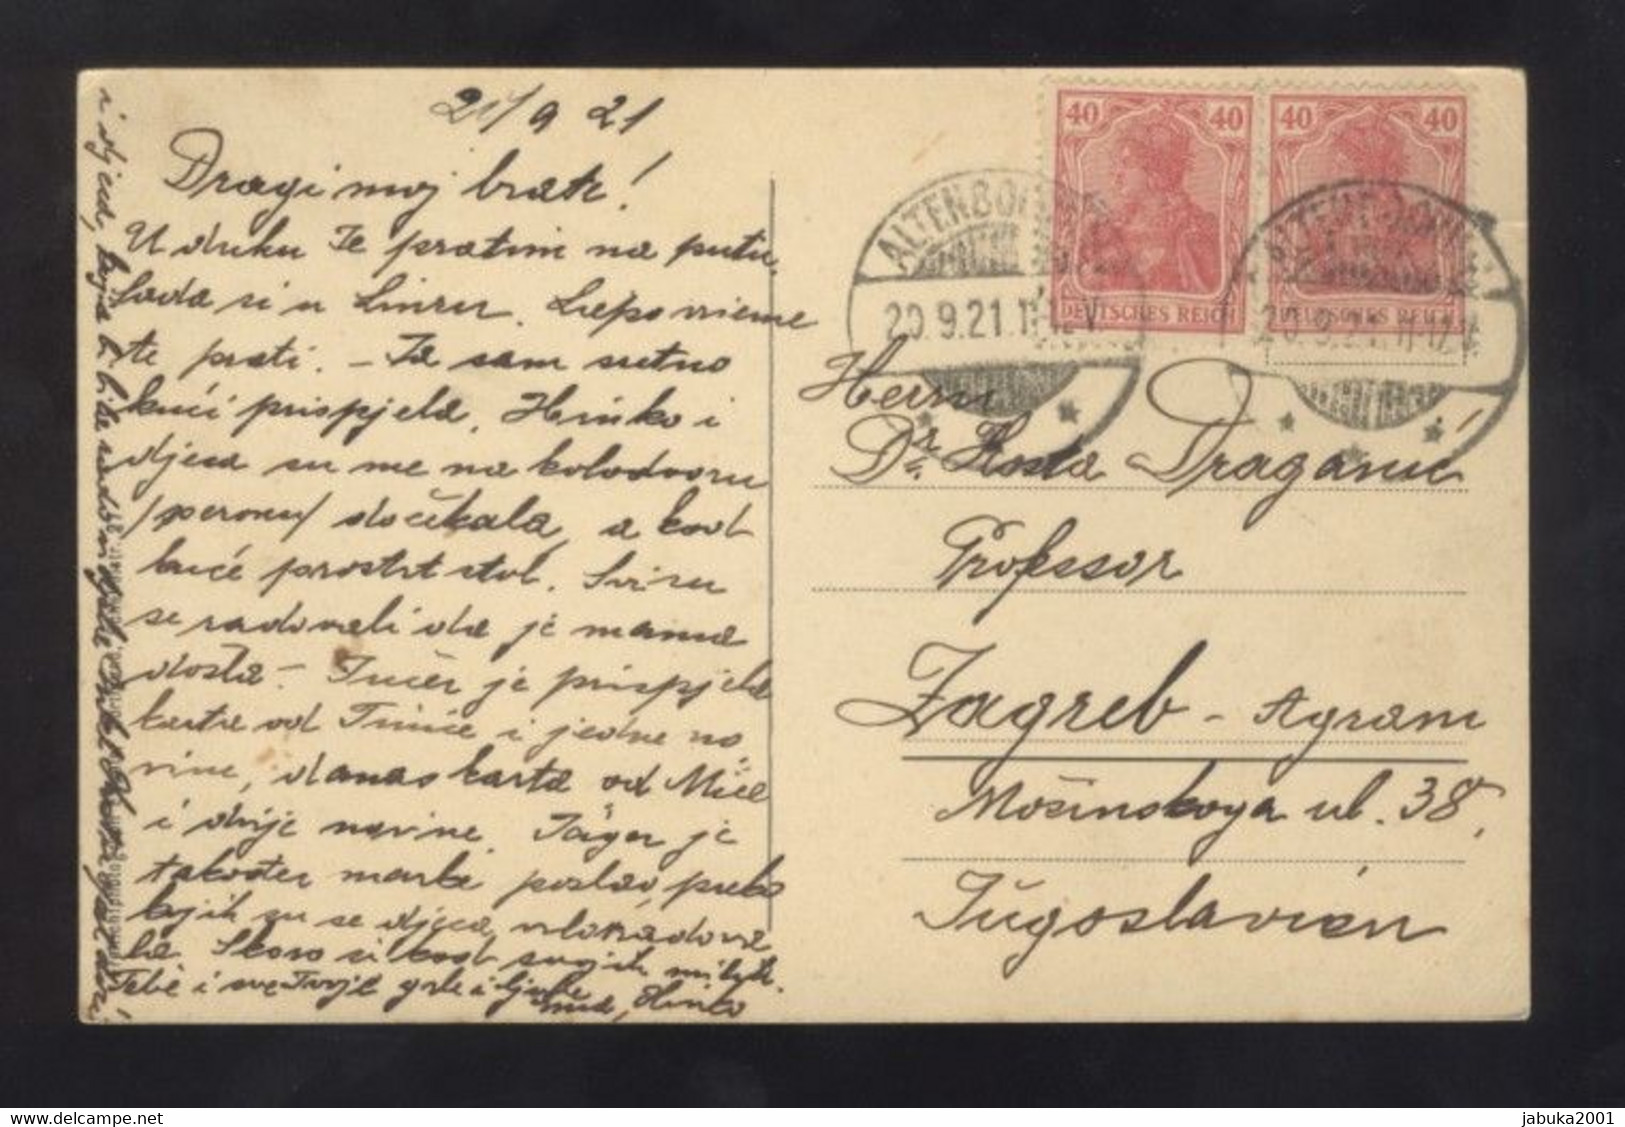 21/9 21
Dragi moj brate!
U duhu Te pratim na putu.
Sada si u Linzu. Liepo vrieme
te prati. – Ja sam sretno
kući prispjela, Hinko i
djeca su me na kolodvoru
/peronu/ dočekala, a kod
kuće prostrt stol. Svi su
se radovali da je mama
došla – Jučer je prispjela
karta od Tinice i jedne no
vine, danas karta od Mice
i dvije novine. Jäger je
također marke poslao, preko
kojih su se djeca
Skoro si kod svojih milih.
Tebe i sve Tvoje grle i ljube
Hinko
i djeca,
40 40
DEUTSCHES REICH
40 40
DEUTSCHES REICH
ALTENBO
20.9.21.11-12V
20.9.21.11-12V
Herrn
Dr. Kosta Draganić
Professor
Zagreb – Agram
Mošinskoga ul. 38,
Jugoslavien
delcampe.net
jabuka2001